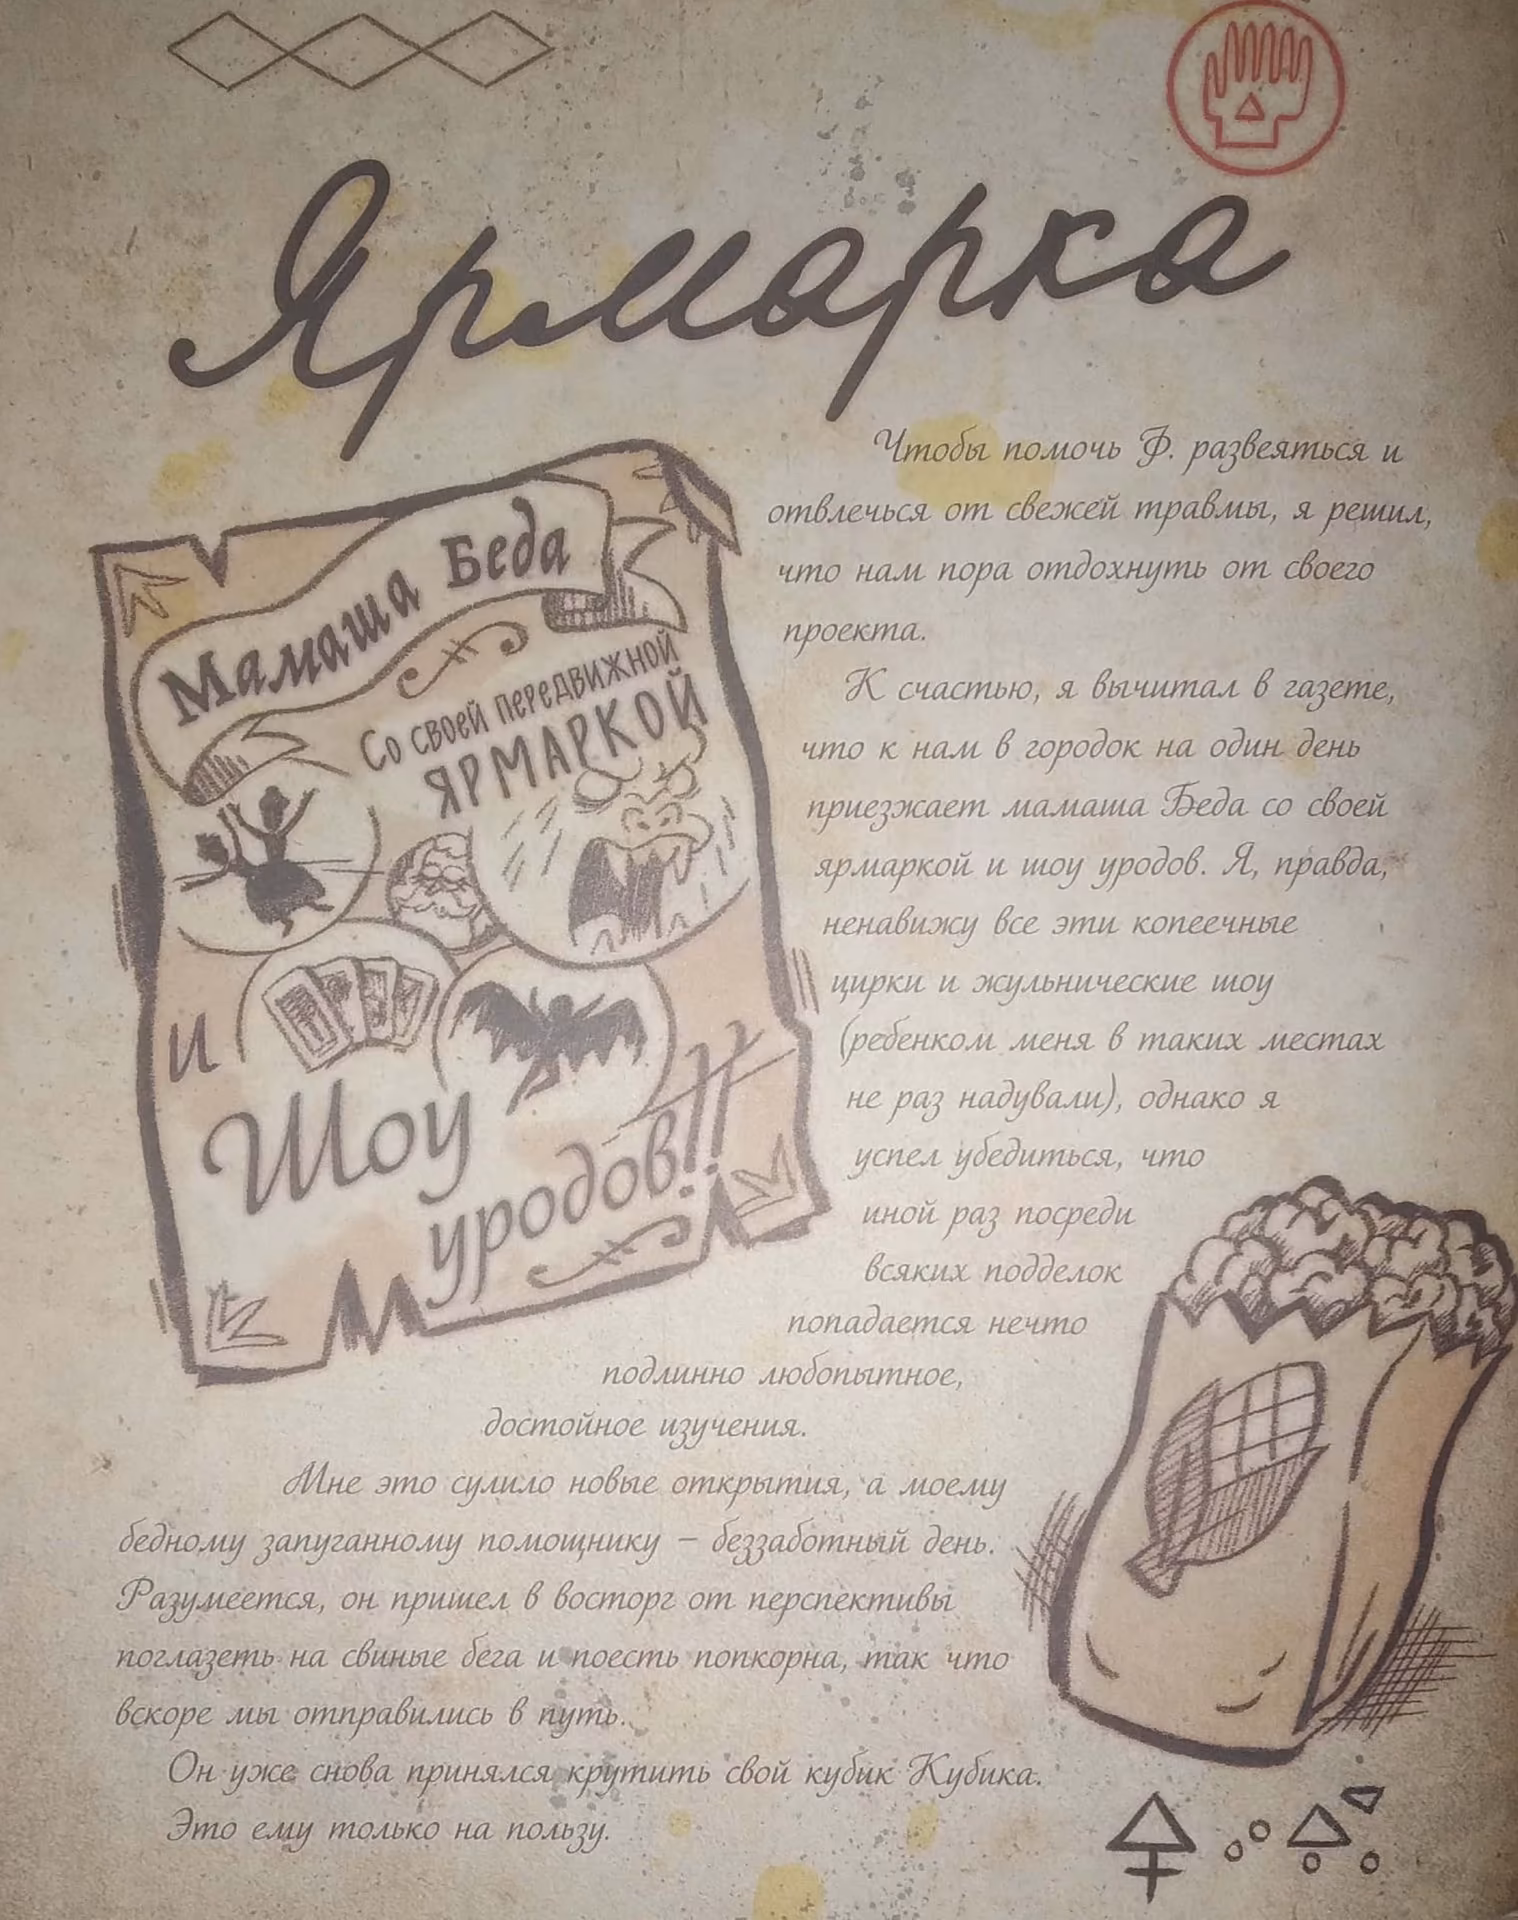 Ярмарка
Мамаша Беда
Со своей передвижной
ЯРМАРКОЙ
и
Шоу
уродов!!
Чтобы помочь Ф. развеяться и
отвлечься от свежей травмы, я решил,
что нам пора отдохнуть от своего
проекта.
К счастью, я вычитал в газете,
что к нам в городок на один день
приезжает мамаша Беда со своей
ярмаркой и шоу уродов. Я, правда,
ненавижу все эти копеечные
цирки и жульнические шоу
(ребенком меня в таких местах
не раз надували), однако я
успел убедиться, что
иной раз посреди
всяких подделок
попадается нечто
подлинно любопытное,
достойное изучения.
Мне это сулило новые открытия, а моему
бедному запуганному помощнику – беззаботный день.
Разумеется, он пришел в восторг от перспективы
поглазеть на свиные бега и поесть попкорна, так что
вскоре мы отправились в путь.
Он уже снова принялся крутить свой кубик Кубика.
Это ему только на пользу.